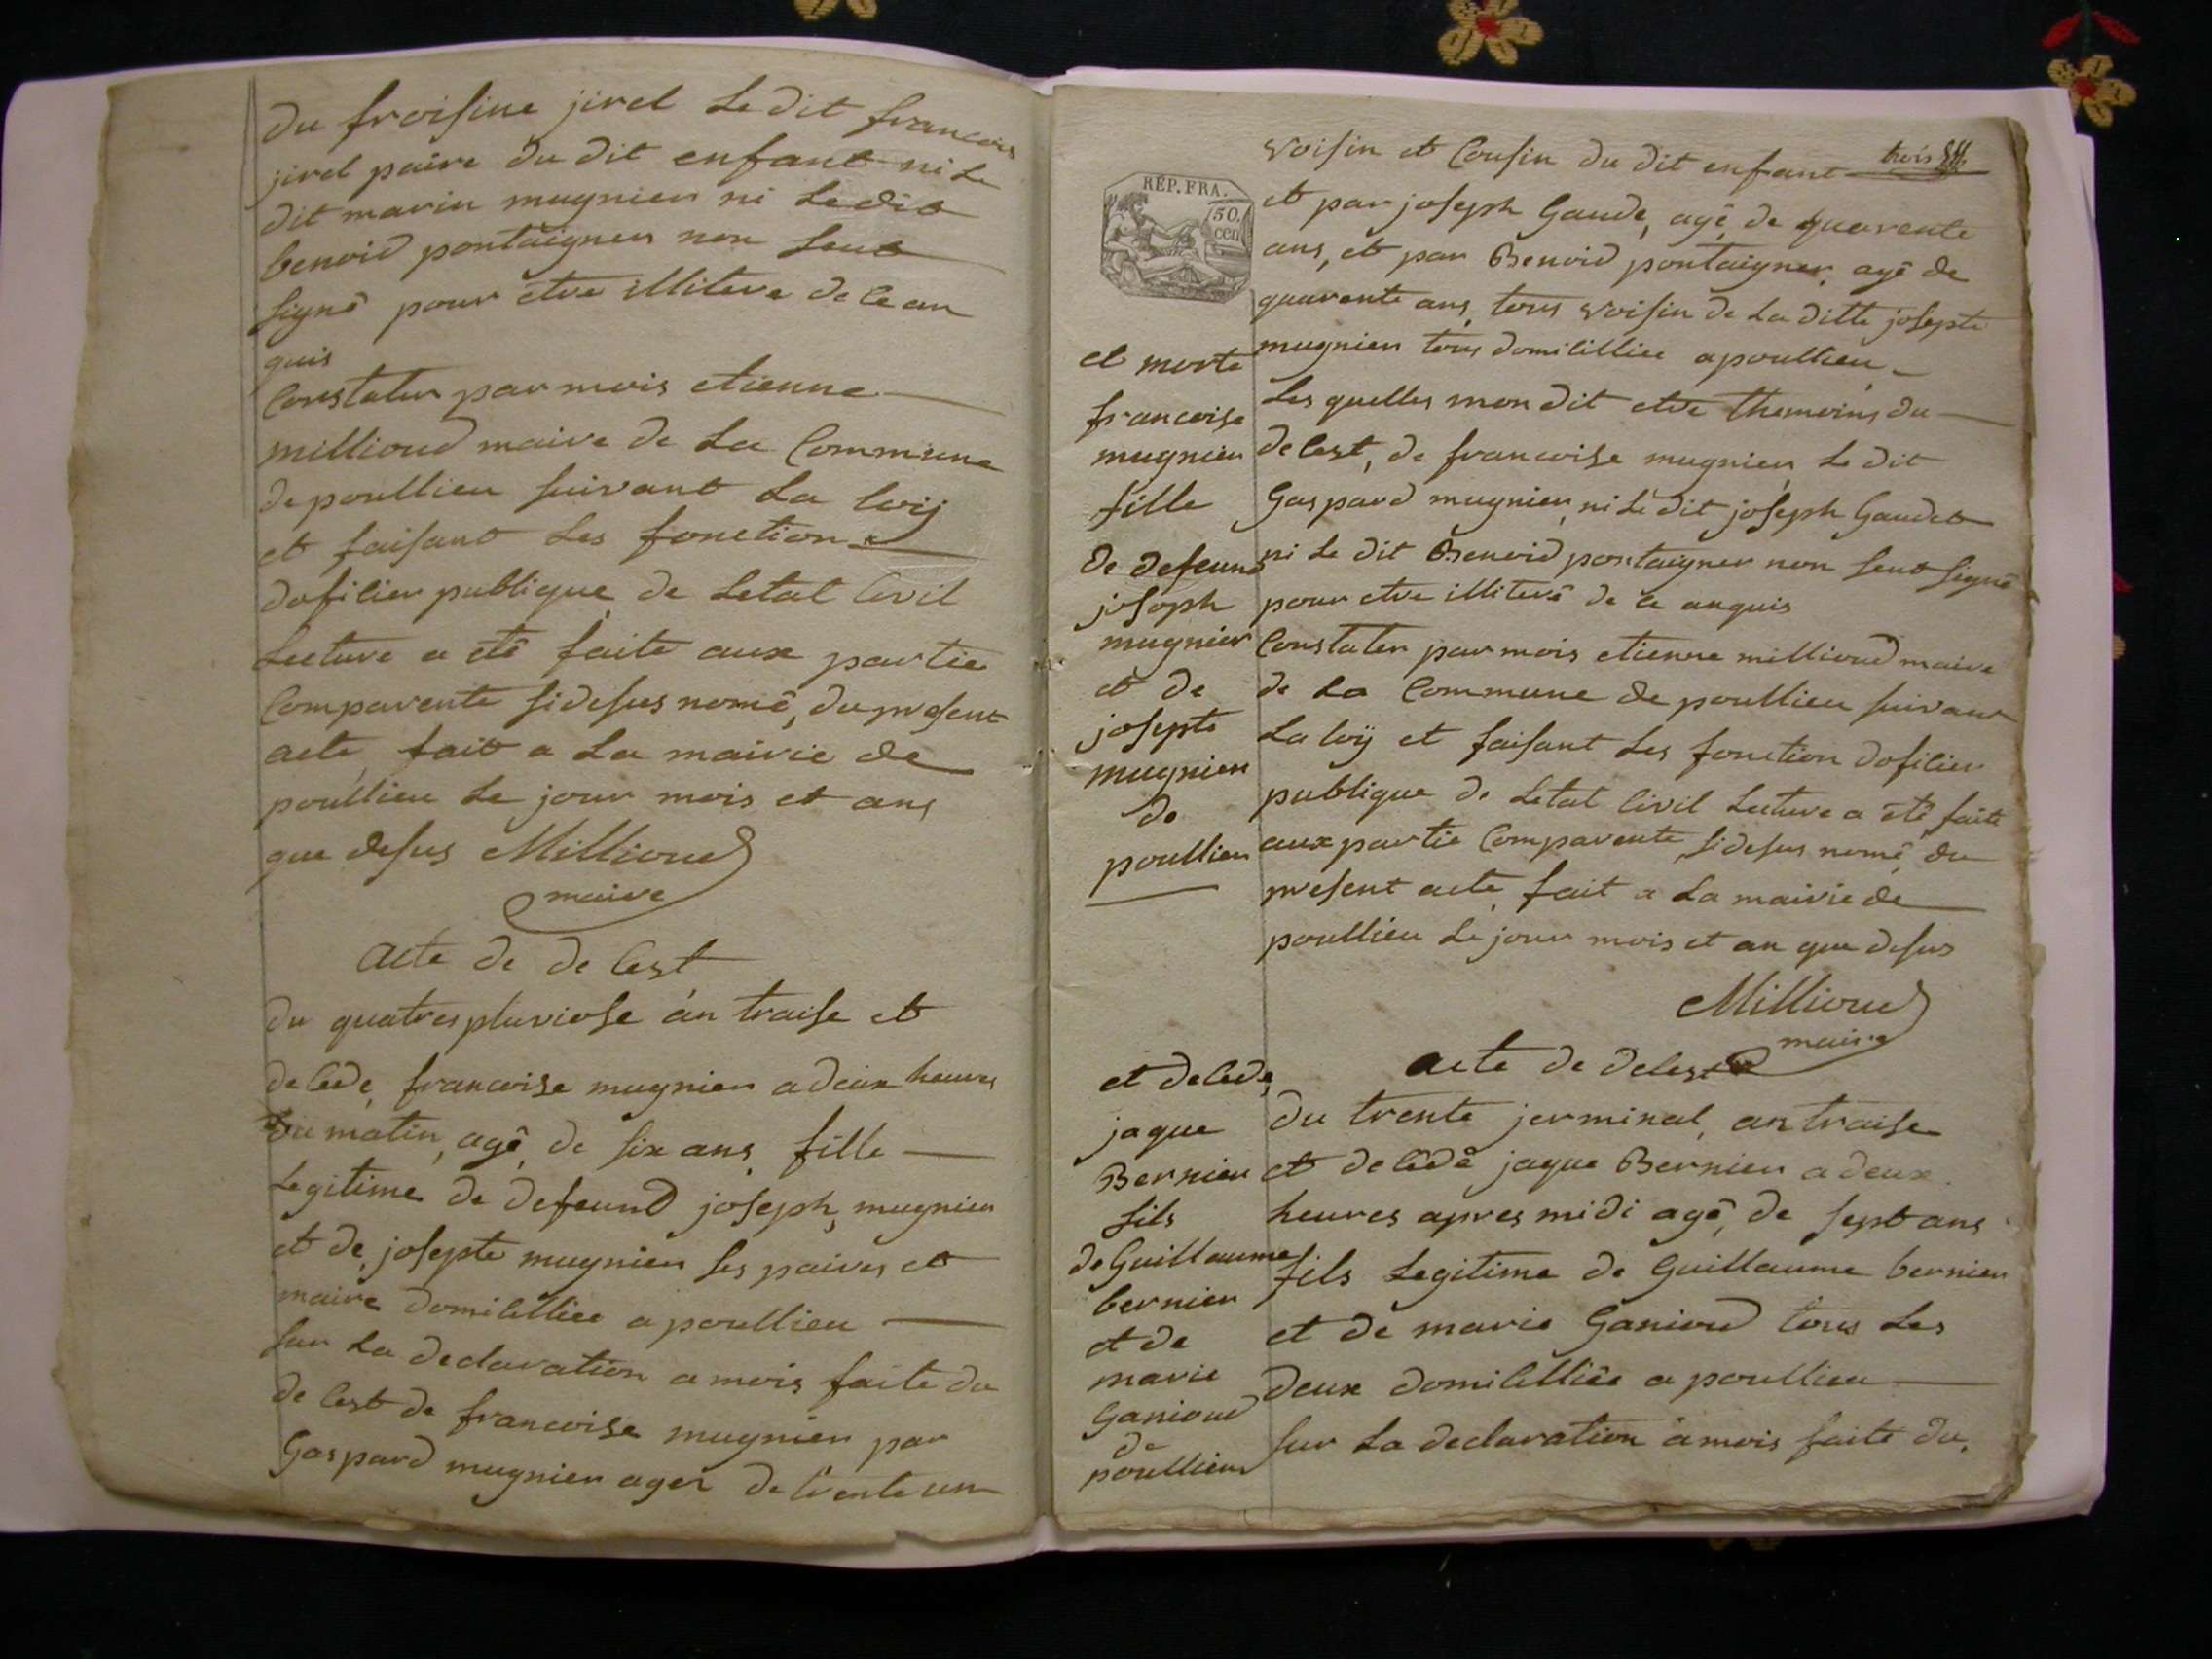 du froisine jirel Le dit francois
jirel paire du dit enfant ni Le
dit marin mugnier ni Le dit
benoid pontaigner non seut
signé pour etre illitere de ce au
quis
Constater par mois etienne
millioud maire de La Commune
de poullieu suivant La loij
et faisant Les fonction
dofilier publique de Letat Civil
Lecture a eté faite aux partie
Comparente sidesus nomé, du present
acte fait a La mairie de
poullieu Le jour mois et ans
que desus Millioud
maire
acte de de Cest
du quatres pluviose an traise et
de Cede, francoise mugnier a deux heures
du matin, agé, de six ans, fille
Legitime de defeund joseph, mugnier
et de, josepte mugnier ses paires et
maire domilillice a poullieu
sur La declaration a mois faite du
de Cest de francoise mugnier par
Gaspard mugnier ager de trente un
trois
voisin et Cousin du dit enfant
et par joseph Gaude, agé, de quarente
ans, et par Benoid pontaigner, agé de
quarente ans, tous voisin de La ditte josepte
mugnier tous domilillice a poullieu
Les quelles mon dit etre themoins du
de Cest, de francoise mugnier, Le dit
Gaspard mugnier, ni Le dit joseph Gaudet
ni Le dit Benoid pontaigner non seut signé
pour etre illiteré de ce auquis
Constater par mois etienne millioud maire
de La Commune de poullieu suivant
La loij et faisant Les fonction dofilier
publique de Letat Civil Lecture a eté faite
aux partie Comparente, sidesus nomé, du
present acte, fait a La mairie de
poullieu Le jour mois et an que desus
Millioud
maire
RÉP. FRA.
50.
cen
et morte
francoise
mugnier
fille
de defeund
joseph
mugnier
et de
josepte
mugnier
de
poullieu
acte de delest
du trente jerminal, an traise
et de Cédé jaque Bernier a deux
heures apres midi agé, de sept ans
fils Legitime de Guillaume bernier
et de marie Ganioud tous Les
deux domilillice a poullieu
sur La declaration a mois faite du
et de Cede,
jaque
Bernier
fils
de Guillaume
bernier
et de
marie
Ganioud
de
poullieu